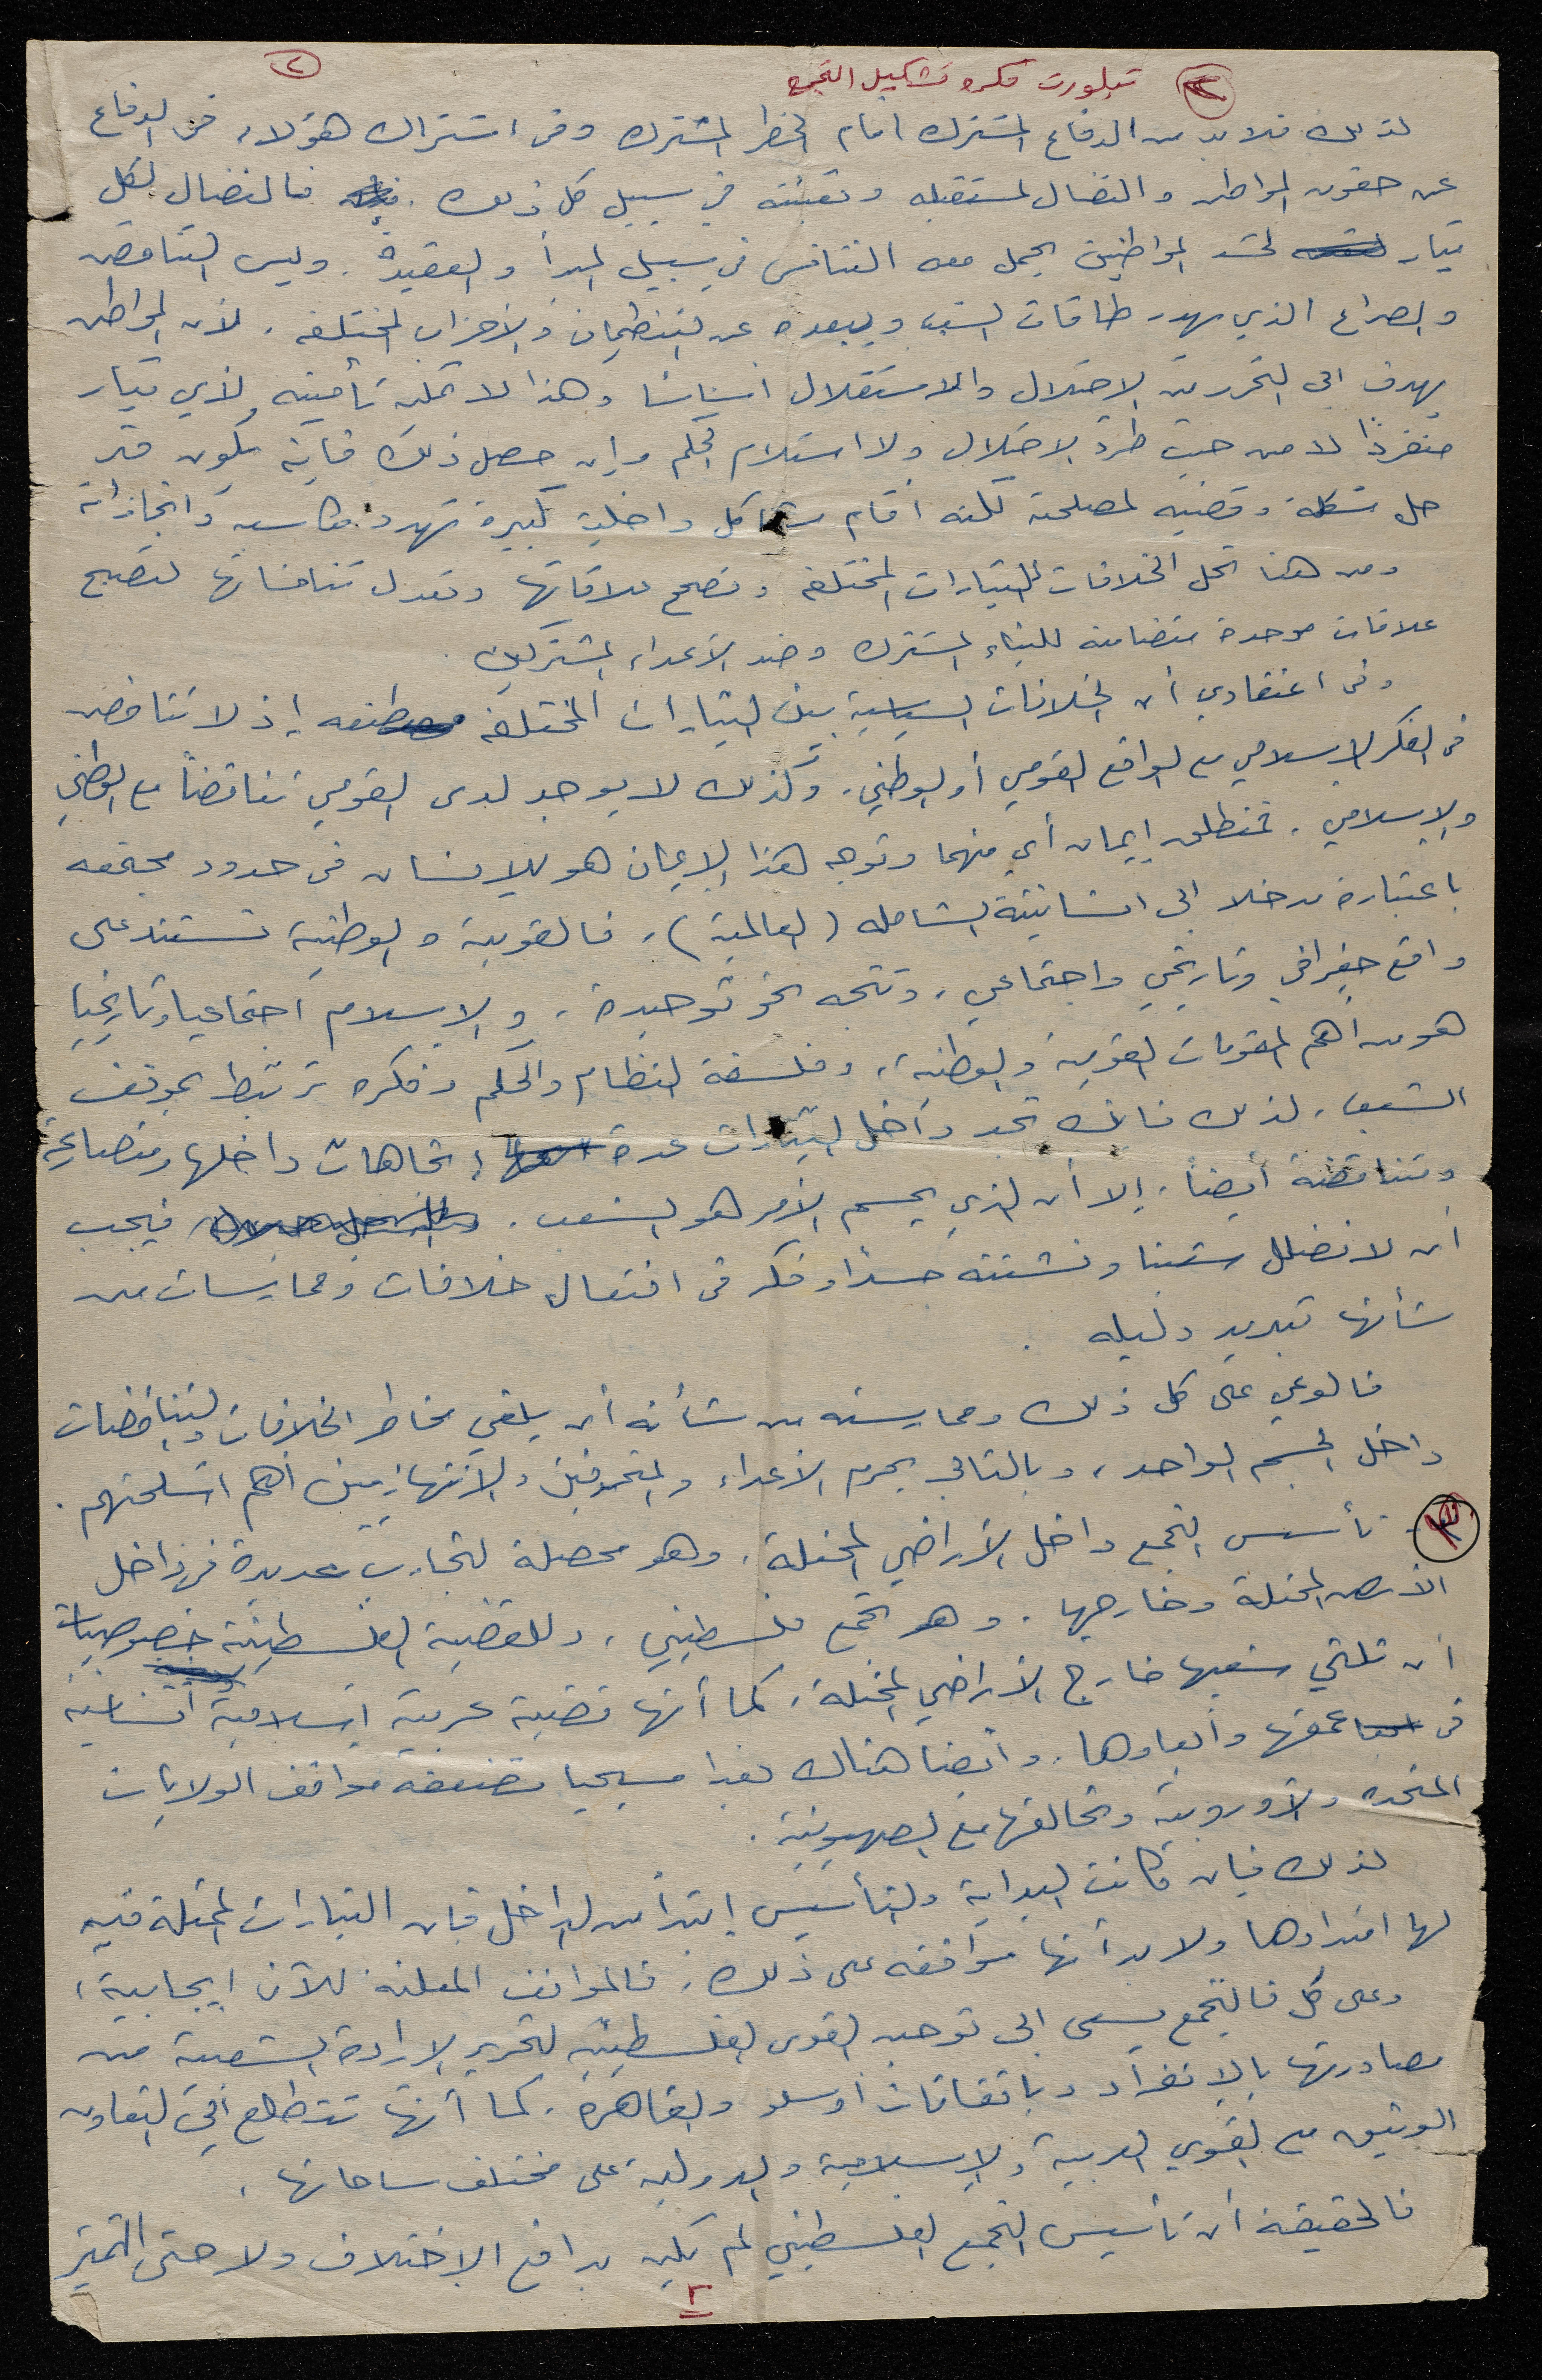 ٢
٢ تبلورت فكره تشكيل التجمع
لذلك فلا بد من الدفاع المشترك أمام الخطر المشترك وفى اشتراك هؤلاء فى الدفاع
عن حقوق المواطن والنضال لمستقبله وتعبئته في سبيل كل ذلك. فالنضال لكل
تيار لحشد المواطنين يحمل معه التنافس في سبيل المبدأ والعقيدة. وليس التناقض
والصراع الذي يهدر طاقات الشعب ويبعده عن التنظيمات والأحزاب المختلفه. لأن المواطن
يهدف الى التحرر من الاحتلال والاستقلال أساسا وهذا لا يمكن تأمينه لأي تيار
منفرداً لا من حيث طرد الاحتلال ولا استلام الحكم وإن حصل ذلك فانه يكون قد
حل مشكلة وقضيه لمصلحته لكنه أمام مشاكل داخلية كبيرة تهدد مكاسبه وانجازاته
ومن هنا تحل الخلافات للتيارات المختلفه وتصحح علاقاتها وتعدل تنافساتها لتصبح
علاقات موحدة متضامنه للبناء المشترك وضد الأعداء المشتركين.
وفى اعتقادي أن الخلافات السياسية بين التيارات المختلفه مصطنعه إذ لا تناقض
فى الفكر الاسلامي مع الواقع القومي أو الوطني. وكذلك لا يوجد لدى القومي تناقضاً مع الوطني
والاسلامي. فمنطلق إيمان أي منهما وتوجه هذا الإيمان هو للانسان فى حدود مجتمعه
باعتباره مدخلا الى انسانيته الشامله (العالمية). فالقومية والوطنية تستند على
واقع جغرافي وتاريخي واجتماعي، وتتجه نحو توحيده. والاسلام اجتماعيا وتاريخيا
هو من أهم المقومات القومية والوطنية، وفلسفة النظام والحكم وفكره ترتبط بموقف
الشعب. لذلك فانك تجد داخل التيارات عدة اتجاهات داخلها ومتصارعة
ومتناقضة أيضاً. إلا أن الذي يحسم الأمر هو الشعب. فيجب
أن لا نضلل شعبنا ونشتته جسداً وفكر فى افتعال خلافات وممارسات من
شأنها تبديد
فالوعي على كل ذلك وممارسته من شأنه أن يلغي مخاطر الخلافات والتناقضات
داخل الجسم الواحد، وبالتالى يحرم الأعداء والمتخوفين والانتهازيين أهم اسلحتهم.
٣ تأسس التجمع داخل الأراضي المحتلة. وهو محصلة لتجارب عديدة فى داخل
الأرض المحتلة وخارجها. وهو تجمع فلسطيني، وللقضية الفلسطينية خصوصياتها
أن ثلثي شعبها خارج الأراضي المحتلة. كما أنها قضية عربية اسلامية انسانية
فى عمقها وأبعادها. وأيضا هناك بعدا مسيحيا تضعفه مواقف الولايات
المتحده والأوروبية وتحالفها مع الصهيونية.
لذلك فإن كانت البداية والتأسيس ابتدأ من الداخل فإن التيارات الممثلة فيه
لها امتدادها ولا بد أنها موافقه على ذلك. فالمواقف المعلنة للآن ايجابية،
وعلى كل فالتجمع يسعى الى توحيد القوى الفلسطينية لتحرير الإرادة الشعبية من
مصادرتها بالانفراد وباتفاقات أوسلو والقاهرة. كما أنها تتطلع الى التعاون
الوثيق مع القوى العربية والاسلامية والدولية على مختلف ساحاتها.
فالحقيقة أن تأسيس التجمع الفلسطيني لم يكن بدافع الاختلاف ولا حتى التميز
٢